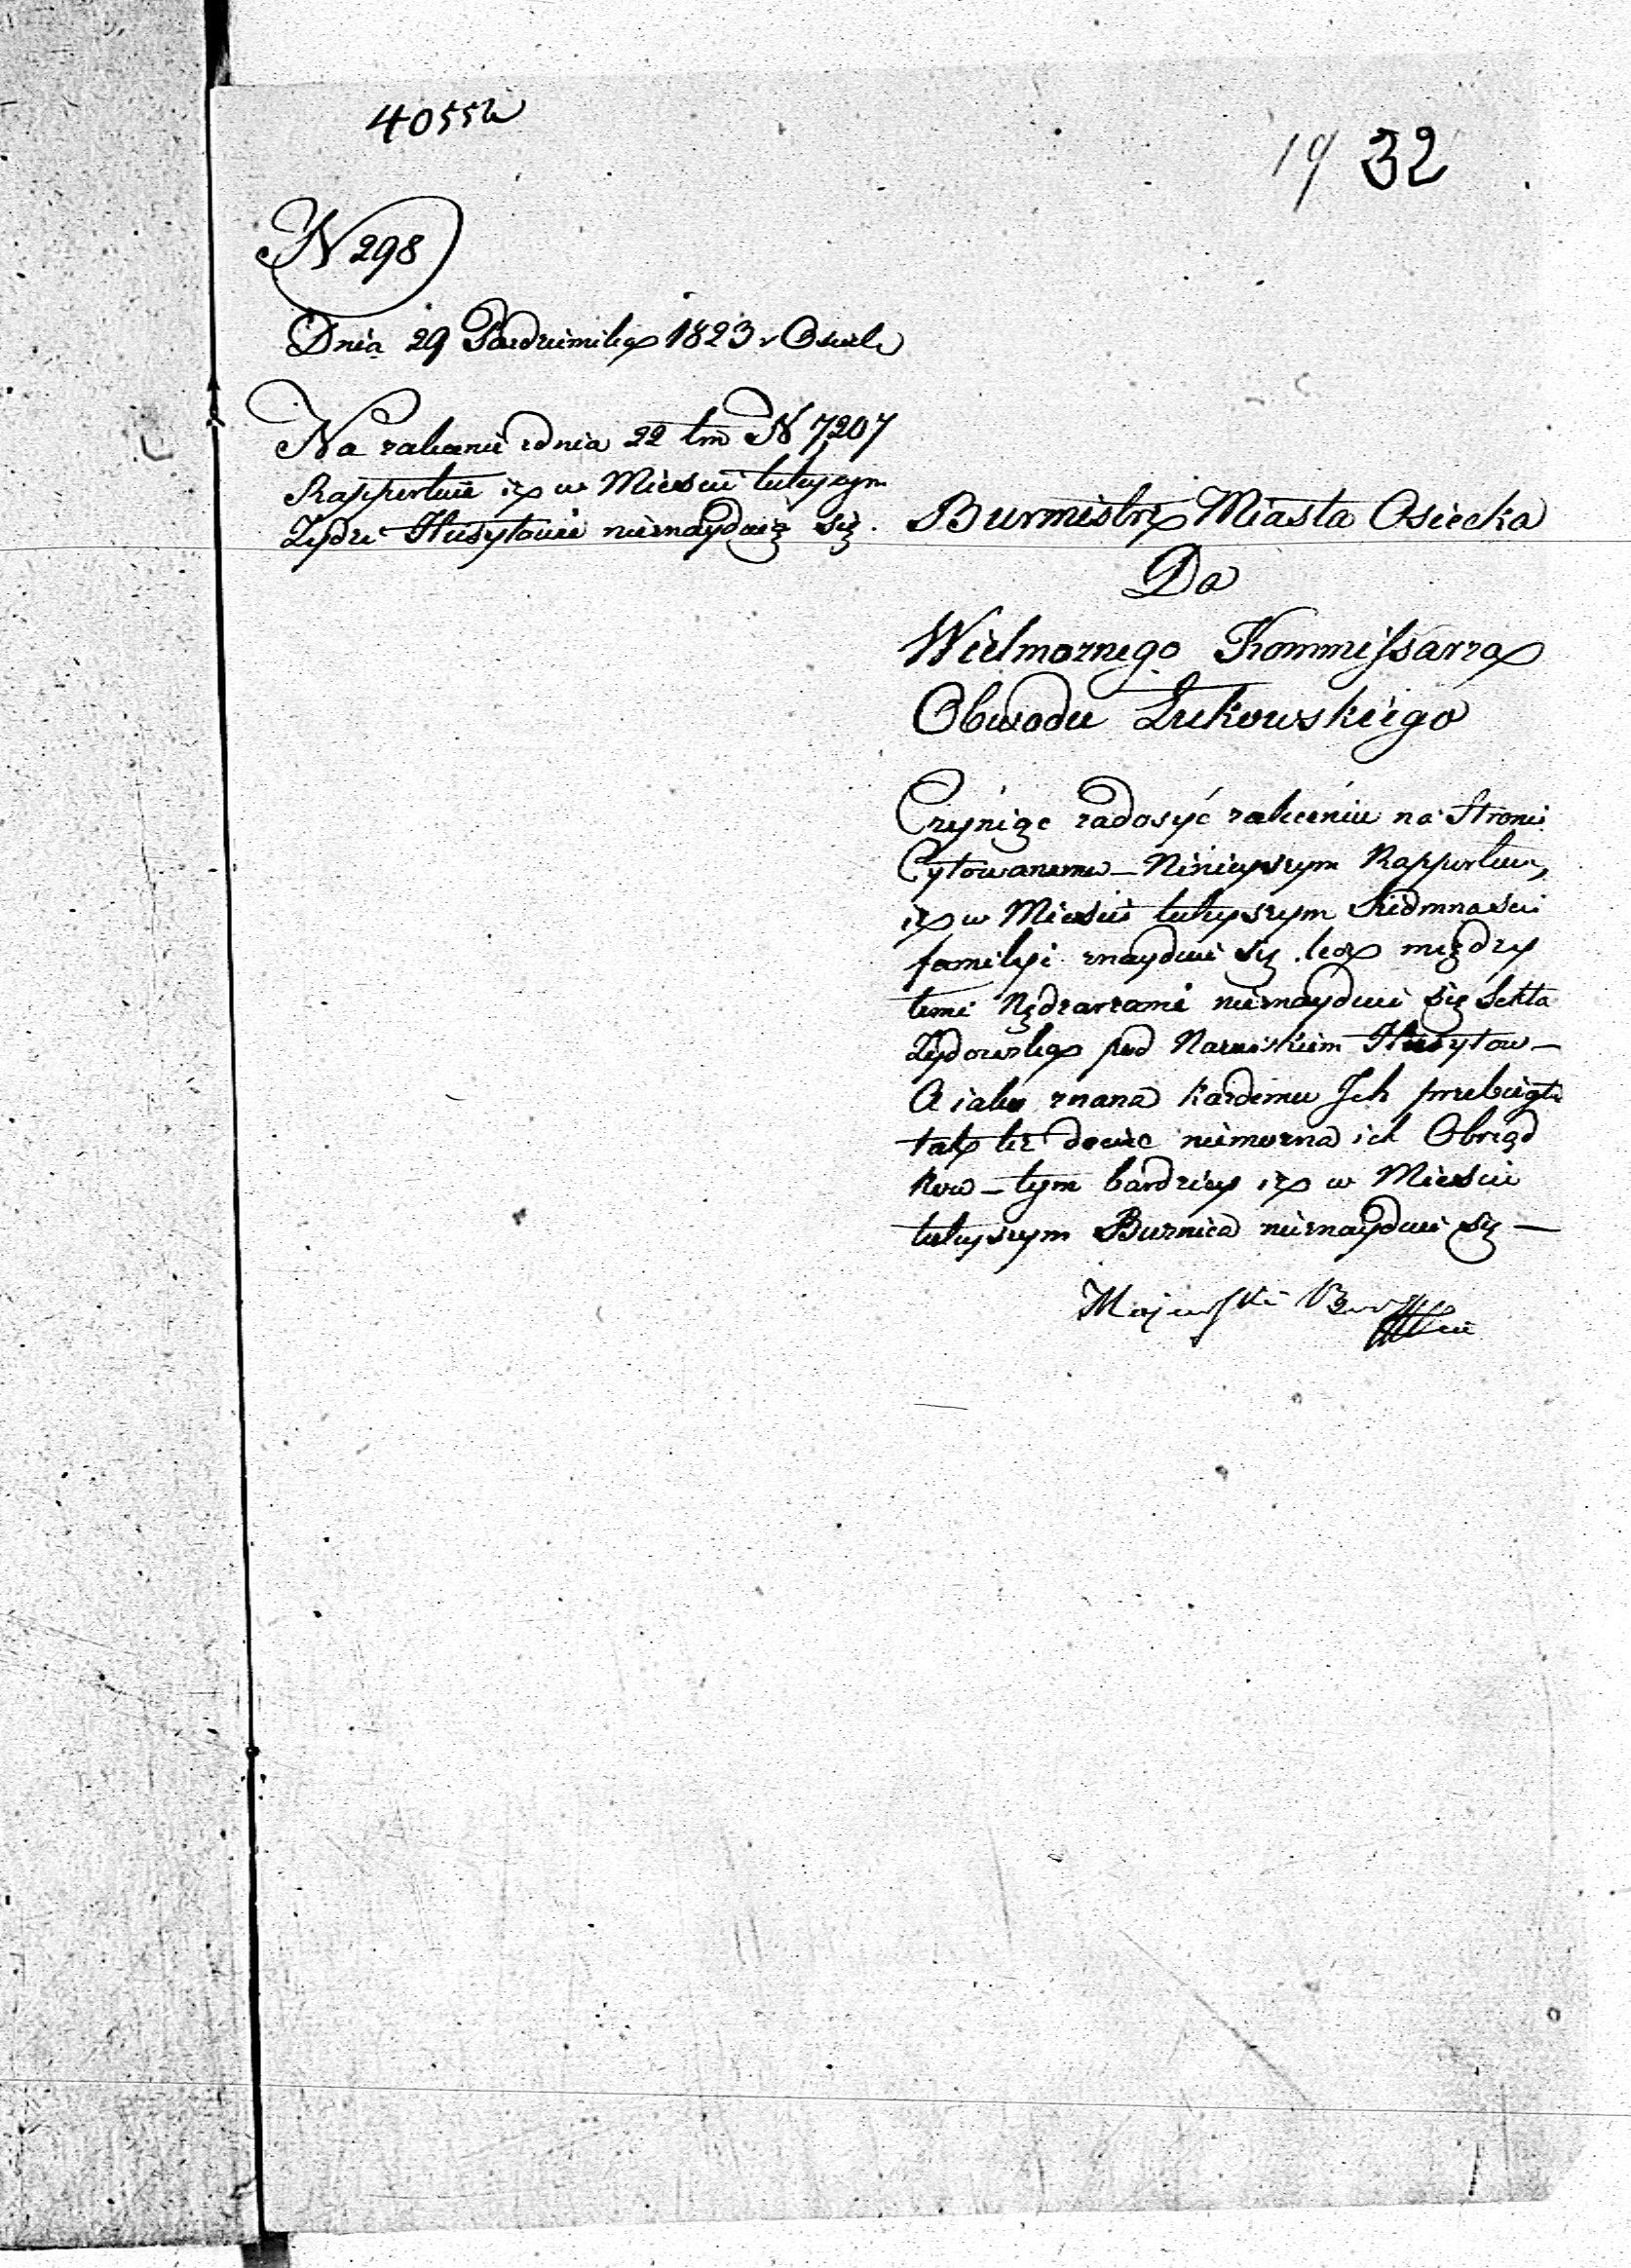 4055
19 32
N 298
Dnia 29 Pazdziernika 1823 r Osieck
Na zalecenie zdnia 22 tm N 7207
Rapportuie iż w Miescie tuteyszym
Żydzi Husytowie nieznayduią się.
Burmistrz Miasta Osiecka
Do
Wielmoznego Kommissarza
Obwodu Łukowskiego
Czyniąc zadosyć zaleceniu na Stronie
Cytowanemu – Ninieyszym Rapportuie,
iż w Miescie tuteyszym Siedmnascie
familyi znayduie się lecz między
temi Nędzarzami nieznayduie się Sekta
Żydowska pod Nazwiskiem Husytow –
A iako znana każdemu Ich przebiegła
tak też dociec niemozna ich Obrząd
kow – tym bardziey iż w Miescie
tuteyszym Buznica nieznayduie się –
Majewski